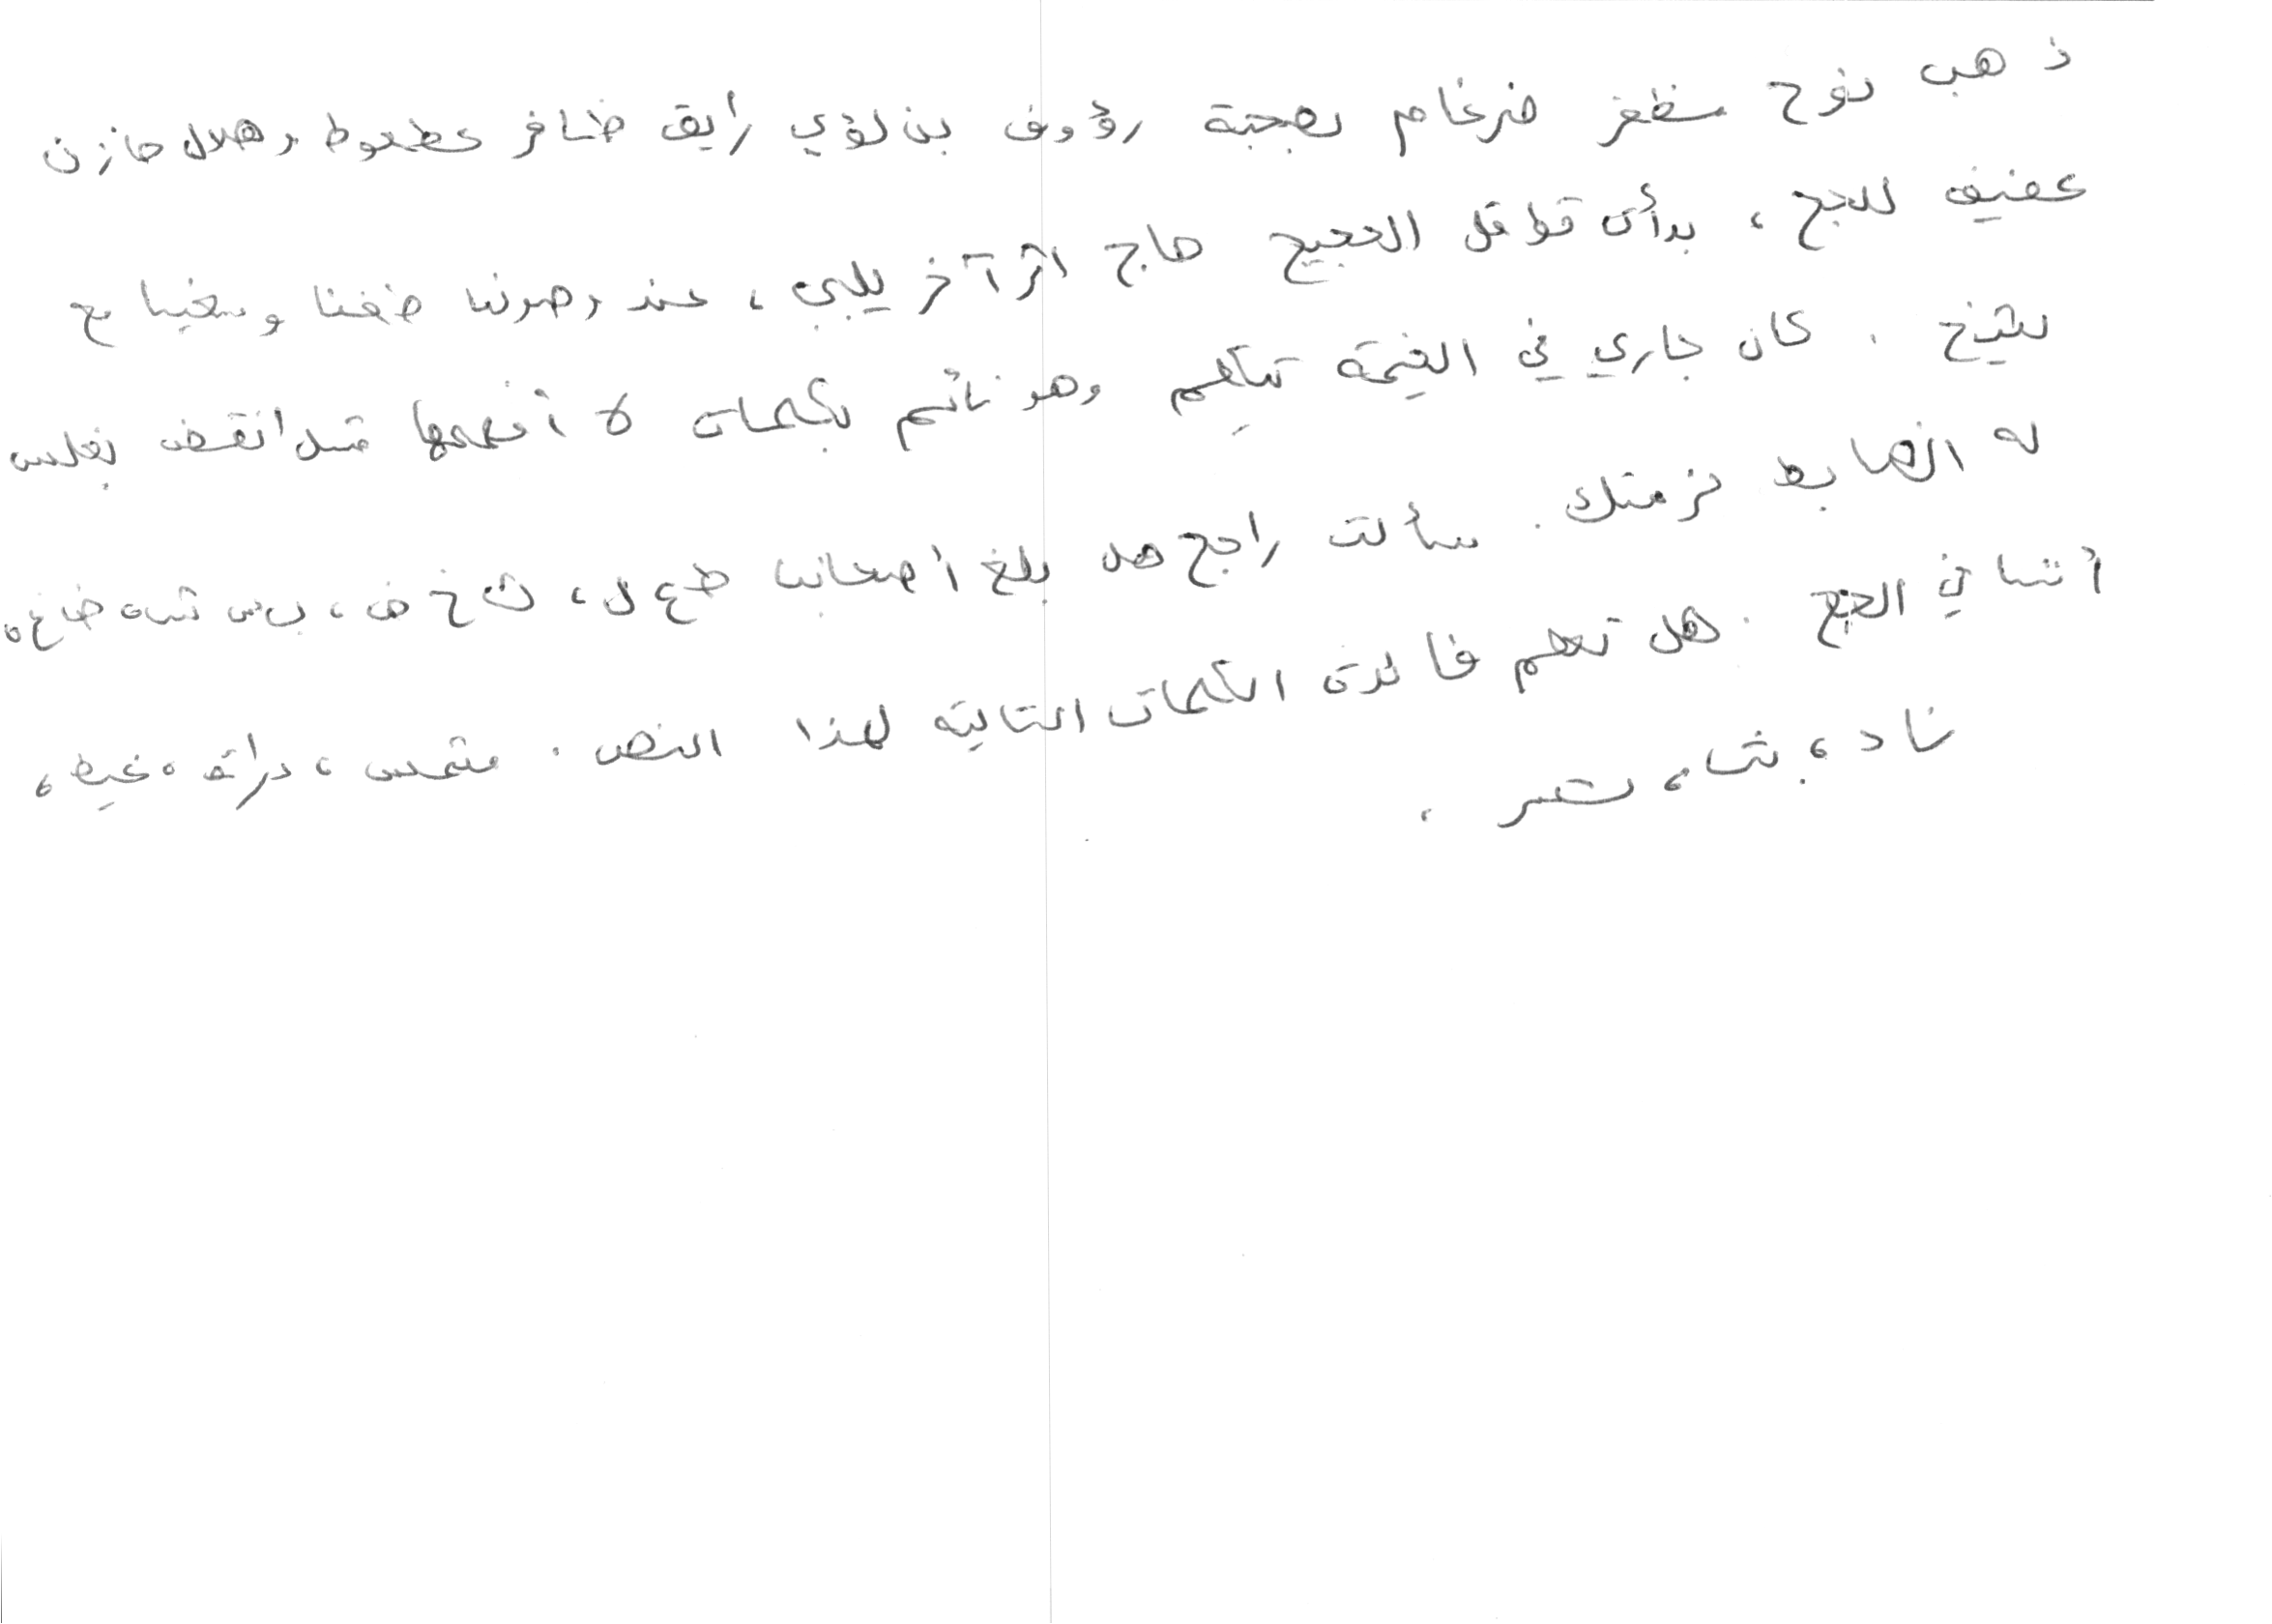 ذهب نوح مظفر ضرغام بصحبة رؤوف بن لؤي رايق ظافر عطعوط وهلال حازن
عفيف للحج ، بدأت قوافل الحجيج حاج اثر آخر يلبي ، عند وصولنا ضفنا وسغبنا مع
شيخ . كان جاري في الخيمة تكلم وهو نائم بكلمات لا أفهمها مثل انقض بغلس
له الضابط نزمتك . سألت راجح هل بلغ أصحابنا ط ع ل ، ث خ ض ،
أثنا في الحج . هل تعلم فائدة الكلمات التالية لهذا النص . متحمس ، غيظ ،
ناد ، بث ،